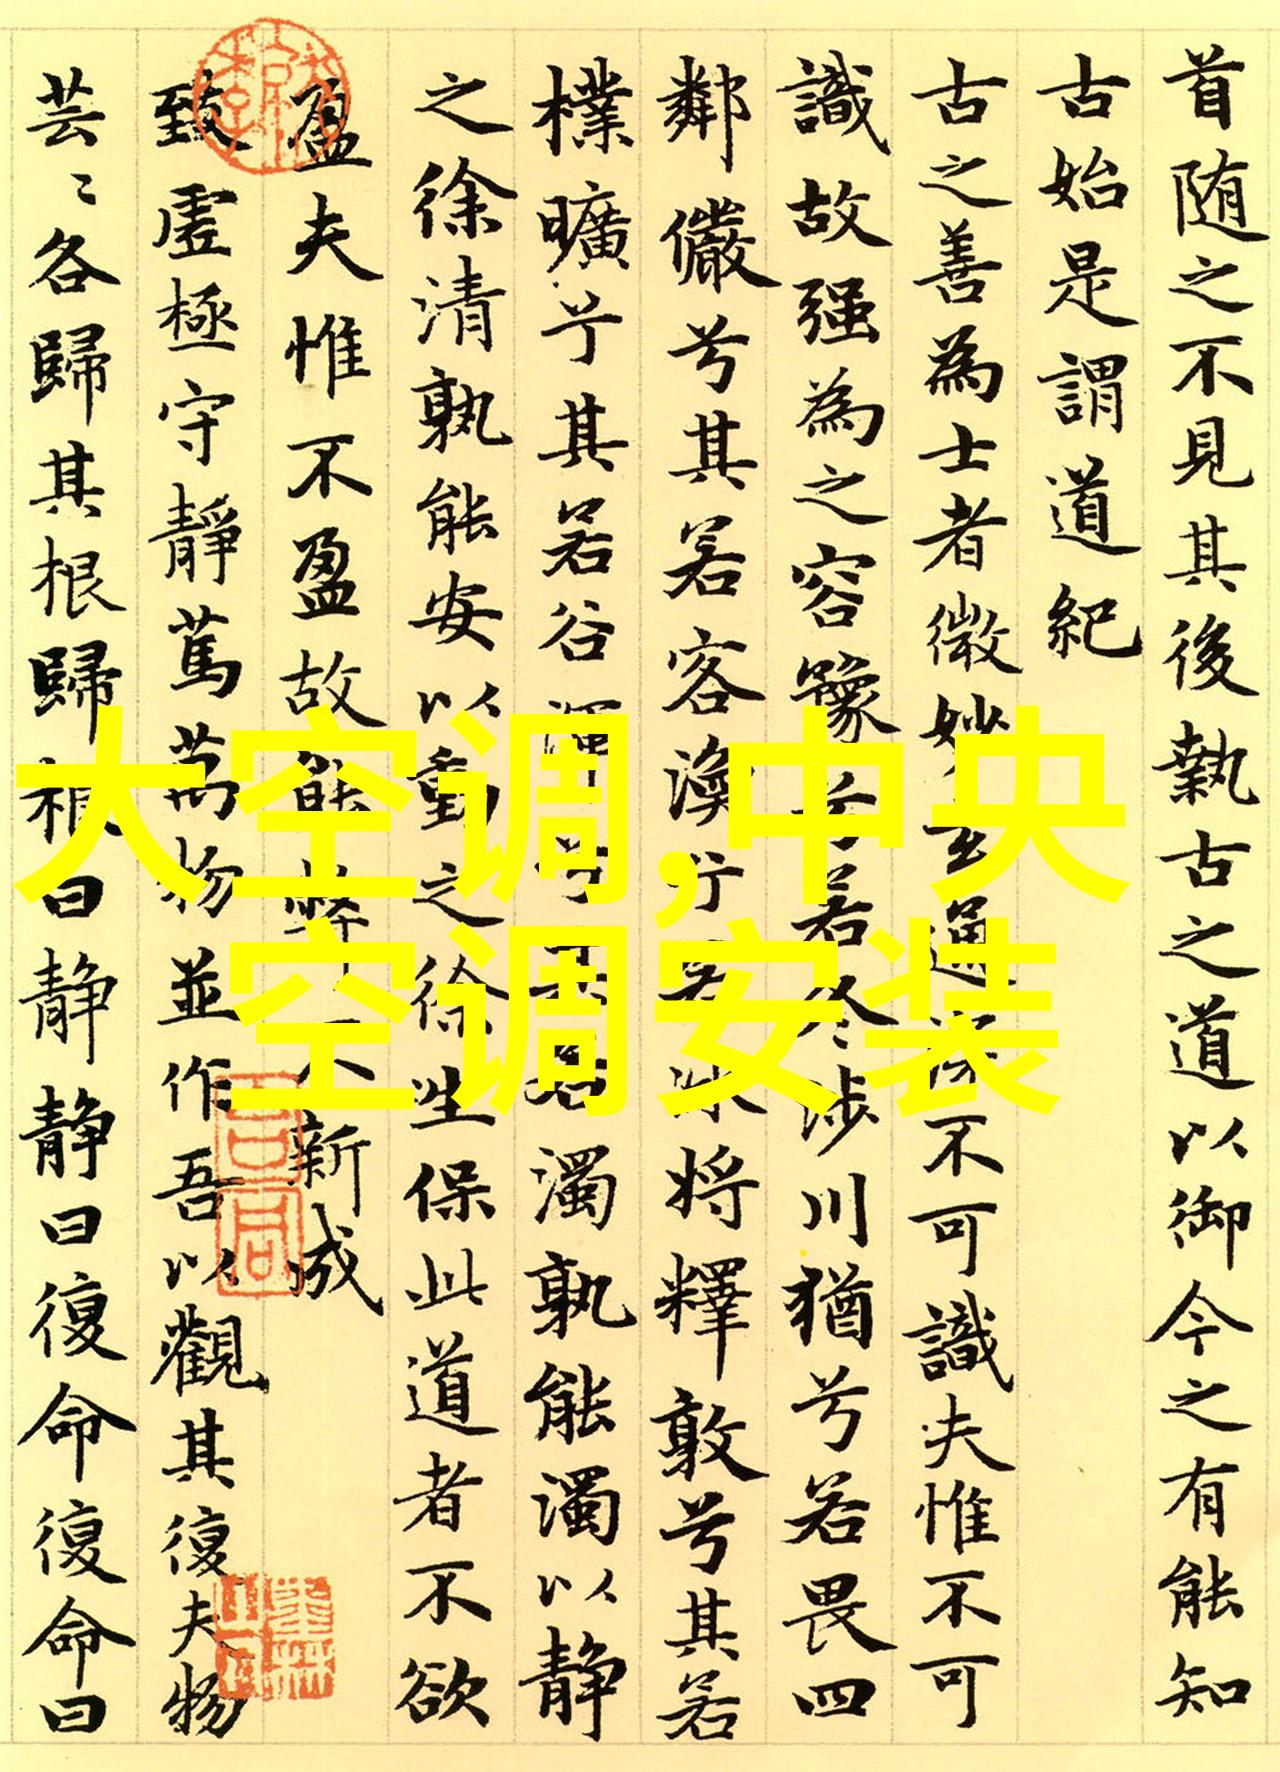 首随之不見其後執古之道以御今之有能知
古始是謂道紀
古之善為士者微妙玄通深不可識夫惟不可
識故强為之容豫兮若冬涉川猶兮若畏四
鄰儼兮其若客渙兮若冰將釋敦兮其若
樸曠兮其若谷渾兮其若濁孰能濁以静
之徐清孰能安以動之徐生保此道者不欲
盈夫惟不盈故能弊不新成
致虚極守靜篤萬物並作吾以觀其復夫物
芸〻各歸其根歸根曰静静曰復命復命曰
大空调,中央
空调安装